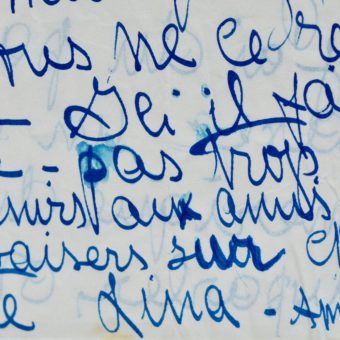 ous ne ce
— Ici il fa
- pas trop
nirs aux amis
aisers sur c
e Lina - Am